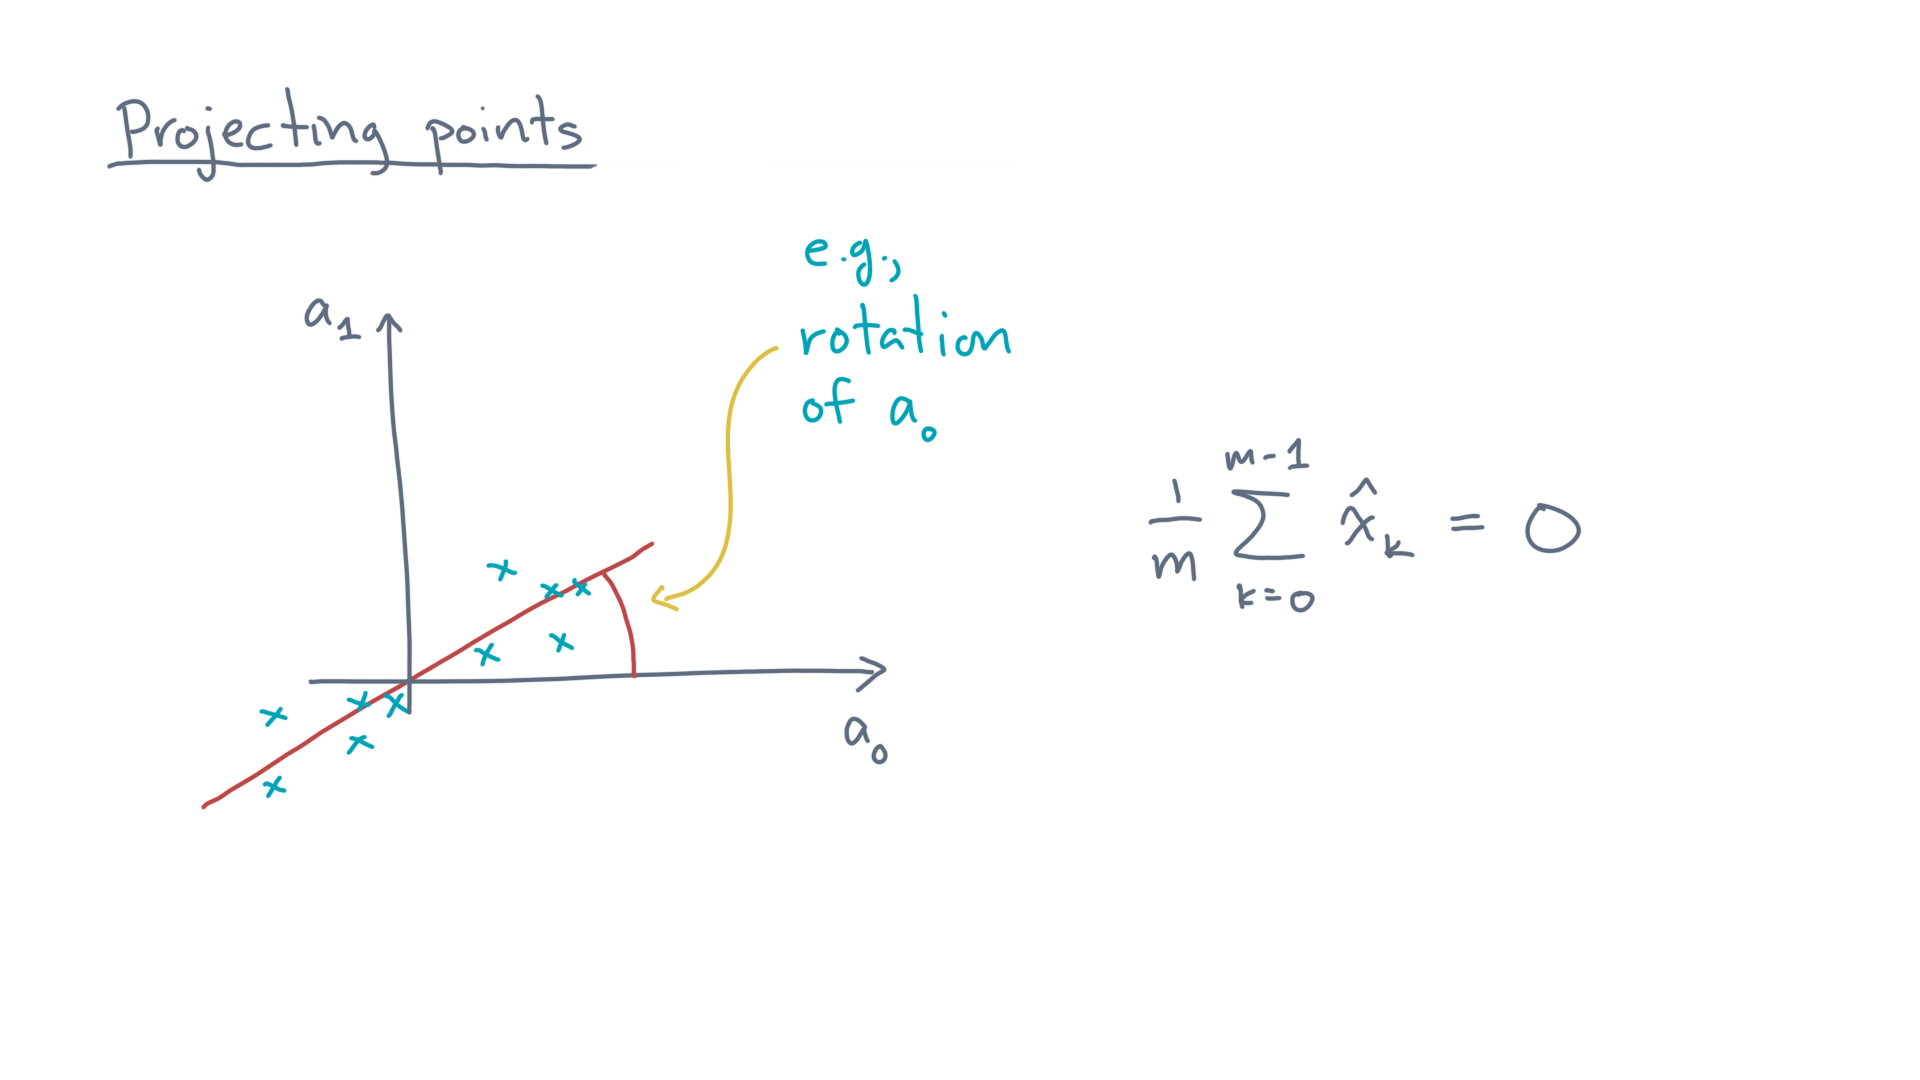 Projecting points
e.g.,
rotation
of a₀
a₁
a₀
m-1
1/m ∑ x̂ₖ = 0
k=0